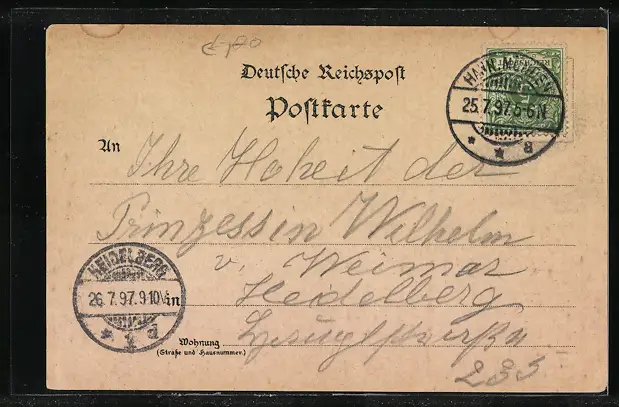 Deutsche Reichspost
Postkarte
HANN. MÜNDEN
25.7.97.5-6N
* * a
An Ihre Hoheit der
Prinzessin Wilhelm
v. Weimar
Heidelberg
HEIDELBERG
26.7.97.9-10V.
* 1 a
Wohnung
(Straße und Hausnummer.)
233